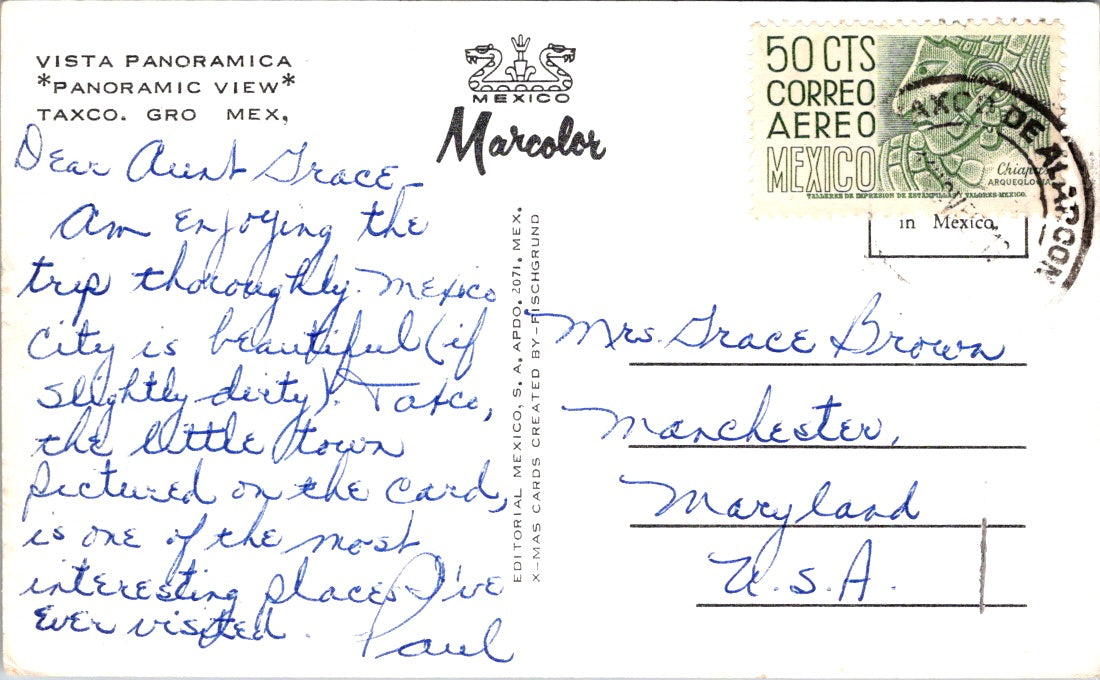 VISTA PANORAMICA
*PANORAMIC VIEW*
TAXCO. GRO MEX,
MEXICO
Marcolor
Dear Aunt Grace,
Am enjoying the
trip thoroughly. Mexico
City is beautiful (if
slightly dirty). Taxco,
the little town
pictured on the card,
is one of the most
interesting places I've
ever visited.
Paul
EDITORIAL MEXICO, S. A. APDO. 2071. MEX.
X-MAS CARDS CREATED BY-FISCHGRUND
50 CTS
CORREO
AEREO
MEXICO
Chiapas
ARQUEOLOGIA
TALLERES DE IMPRESION DE ESTAMPILLAS Y VALORES-MEXICO.
TAXCO DE ALARCON
in Mexico.
Mrs. Grace Brown
Manchester,
Maryland
U.S.A.